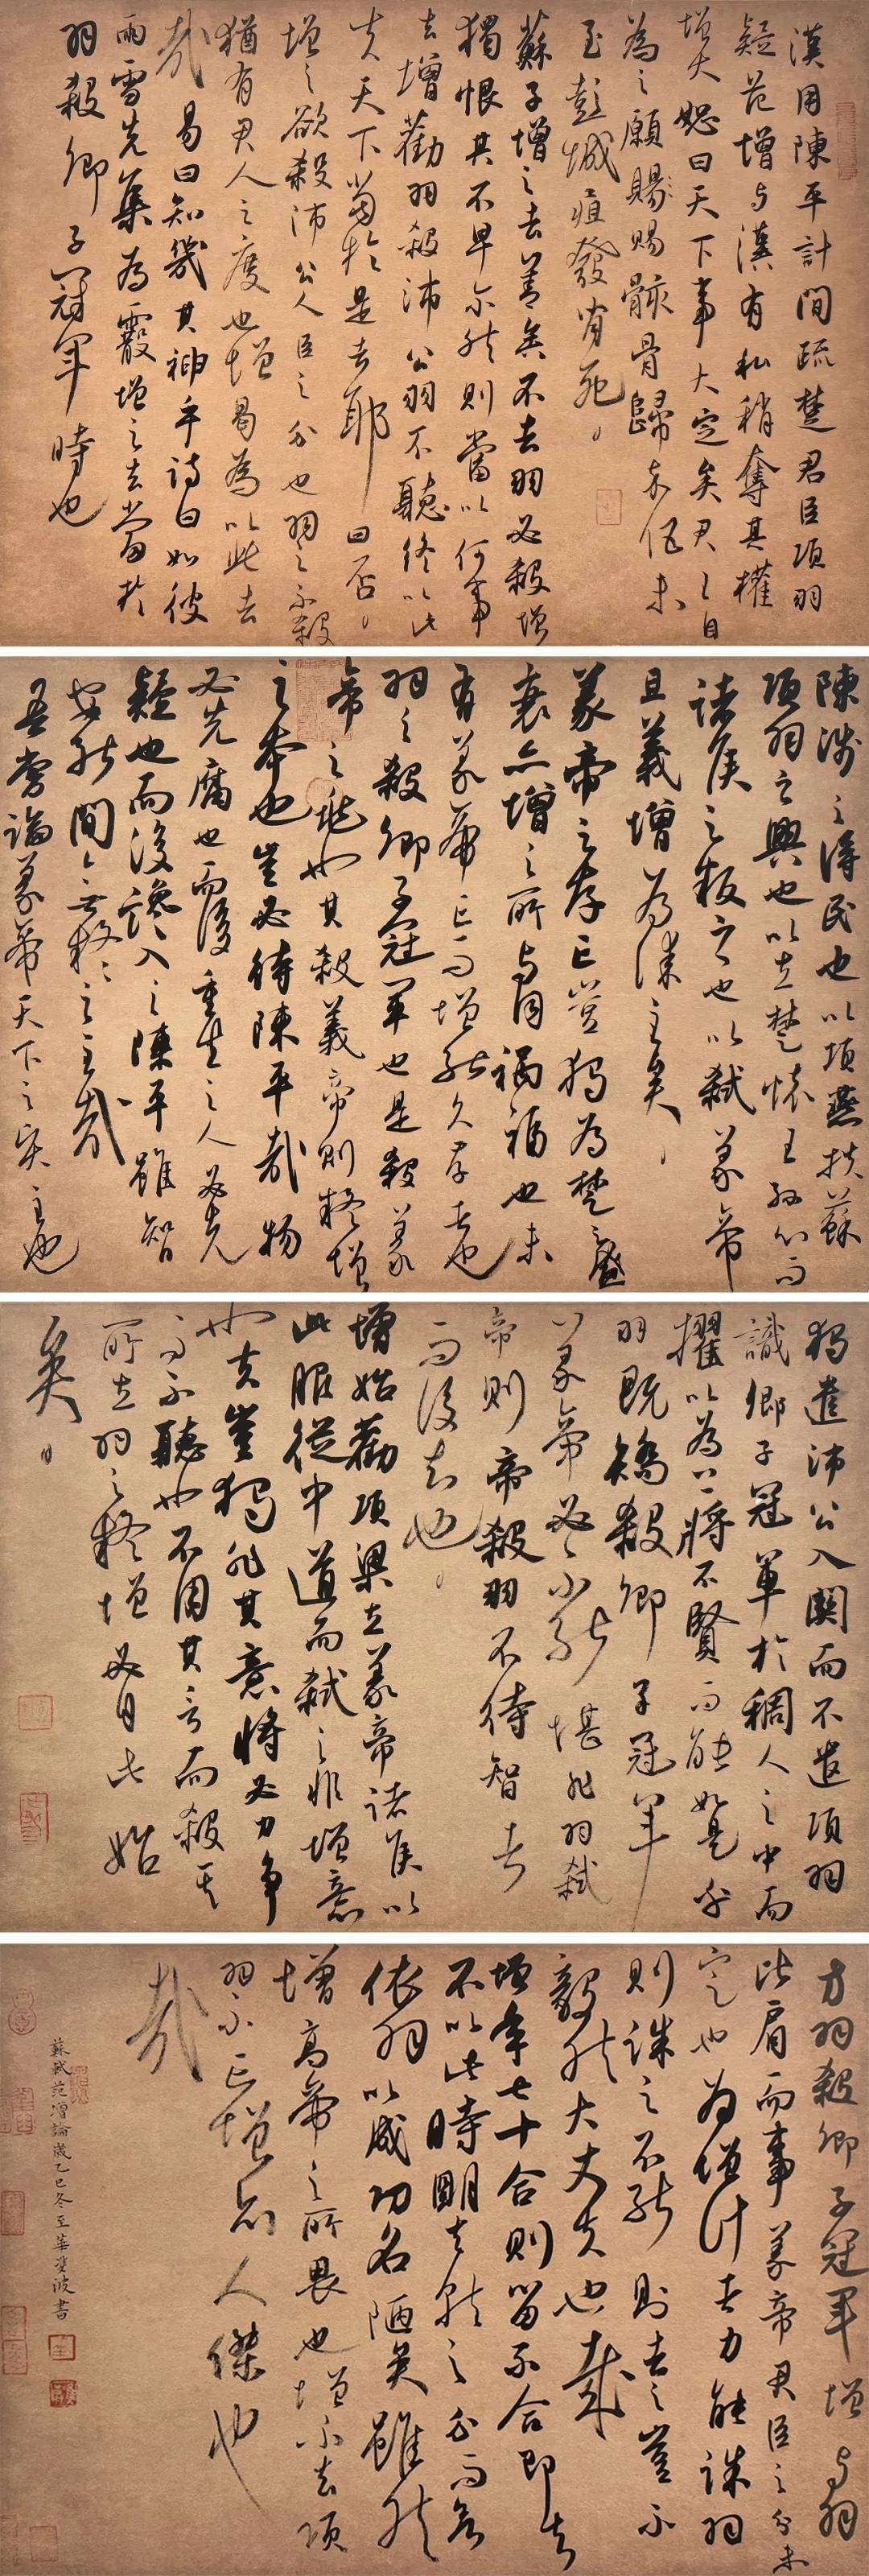 漢用陳平計間疏楚君臣項羽
疑范增與漢有私稍奪其權
增大怒曰天下事大定矣君王自
為之願賜賜骸骨歸卒伍未
至彭城疽發背死
蘇子增之去善矣不去羽必殺增
獨恨其不早爾然則當以何事
去增勸羽殺沛公羽不聽終以此
失天下當於是去耶曰否
增之欲殺沛公人臣之分也羽之不殺
猶有君人之度也增曷為以此去
哉易曰知幾其神乎詩曰如彼
雨雪先集為霰增之去當於
羽殺卿子冠軍時也
陳涉之得民也以項燕扶蘇
項羽之興也以立楚懷王孫心而
諸侯之叛之也以弒義帝
且義增為謀主矣
義帝之存亡豈獨為楚之盛
衰亦增之所與同禍福也未
有義帝亡而增能久存者也
羽之殺卿子冠軍也是殺義
帝之兆也其殺義帝則疑增
之本也豈必待陳平哉物
必先腐也而後蟲生之人必先
疑也而後讒入之陳平雖智
安能間無疑之主哉
吾嘗論義帝天下之賢主也
獨遣沛公入關而不遣項羽
識卿子冠軍於稠人之中而
擢以為上將不賢而能如是乎
羽既矯殺卿子冠軍
義帝必不能堪非羽弒
帝則帝殺羽不待智者
而後知也
增始勸項梁立義帝諸侯以
此服從中道而弒之非增意
也夫豈獨非其意將必力爭
而不聽也不用其言而殺其
所立羽之疑增必自此始
矣
方羽殺卿子冠軍增與羽
比肩而事義帝君臣之分未
定也為增計者力能誅羽
則誅之不能則去之豈不
毅然大丈夫也哉
增年七十合則留不合即去
不以此時明去就之分而欲
依羽以成功名陋矣雖然
增高帝之所畏也增不去項
羽不亡增亦人傑也
哉
蘇軾范增論歲乙巳冬至華雙波書